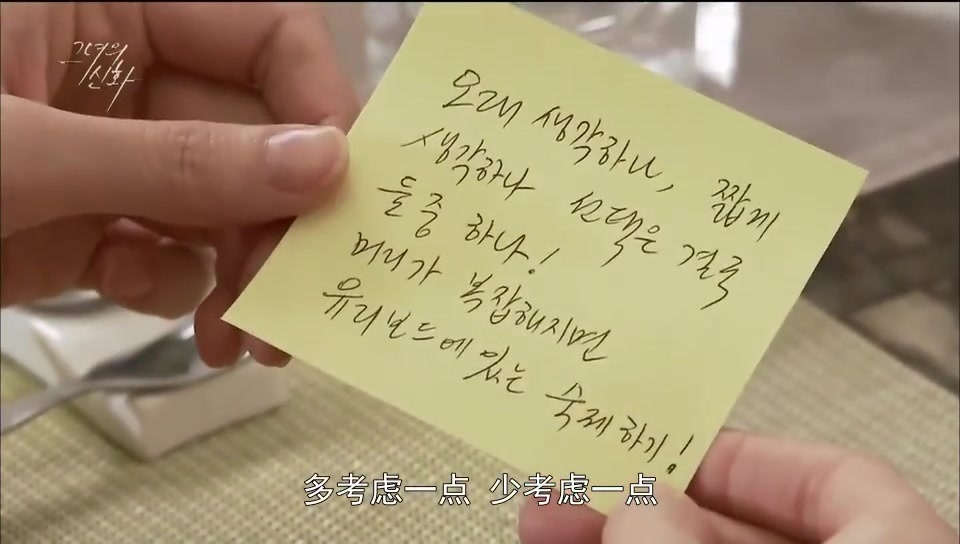 그녀의
신화
오래 생각하나, 짧게
생각하나 선택은 결국
둘중 하나!
머리가 복잡해지면
유리보드에 있는 숙제하기!
多考虑一点 少考虑一点